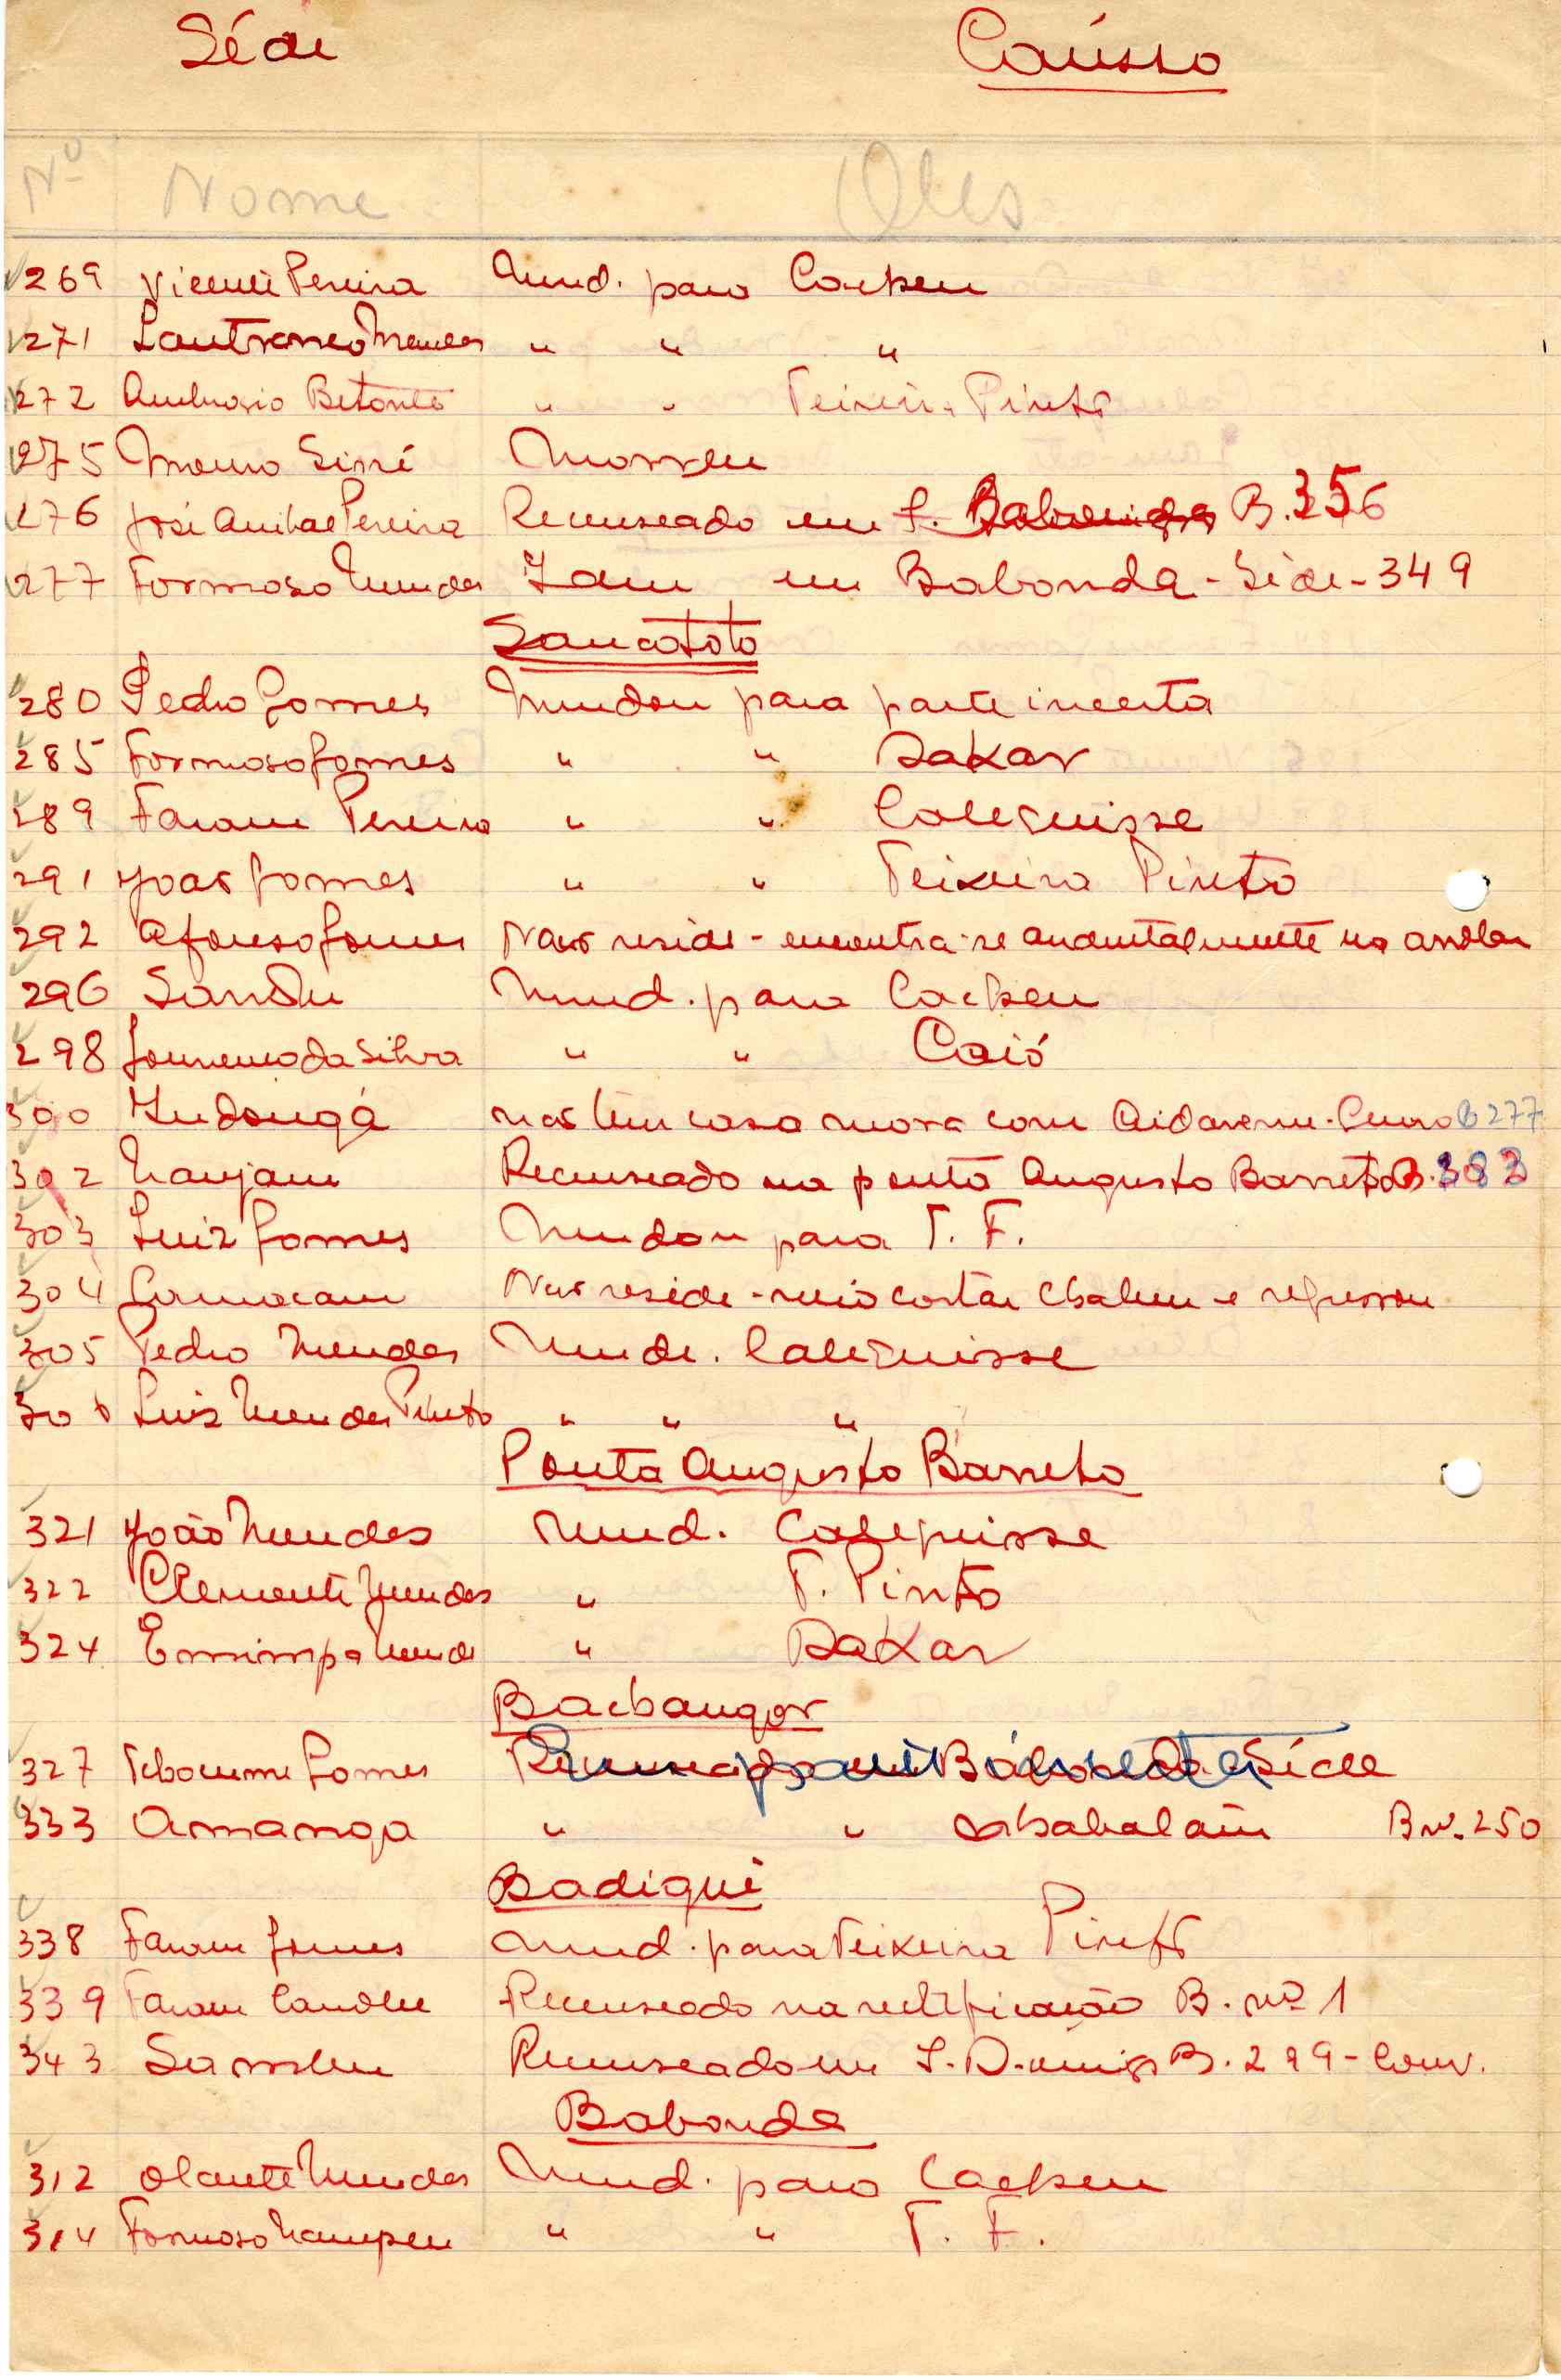 Séde Caússo
Nº Nome Obs
269 Vicente Pereira Mud. para Cacheu
271 Mendes " " "
272 Ambrosio Betonte " " Teixeira Pinto
275 Morreu
276 José Anibal Pereira Recenseado em B. 356
277 Formoso Mendes Idem em Babonda - Séde - 349
Sancototo
280 Pedro Gomes Mudou para parte incerta
285 Formoso Gomes " " Dakar
289 Faram Pereira " " Calequisse
291 Joao Gomes " " Teixeira Pinto
292 Afonso Gomes Não reside - encontra-se acidentalmente na
296 Mud. para Cacheu
298 Lourenço da Silva " " Caió
300 Indongá não tem casa mora com B 277
302 Nanjam Recenseado na ponta Augusto Barreto B. 383
303 Luiz Gomes Mudou para T. F.
304 Não reside - veio cortar chabeu e regressou
305 Pedro Mendes Mudo. Calequisse
306 Luiz Mendes Pinto " " "
Ponta Augusto Barreto
321 João Mendes Mud. Calequisse
322 Clemente Mendes " T. Pinto
324 Mende " Dakar
Bachangor
327 Gomes Séde
333 Amanga " " B nº. 250
Badiqui
338 Faram Gomes Mud. para Teixeira Pinto
339 Faram Recenseado na rectificação B. nº 1
343 Recenseado em S. B. 299 - Conv.
Babonda
312 Mendes Mud. para Cacheu
314 Formoso Nampeu " " T. F.